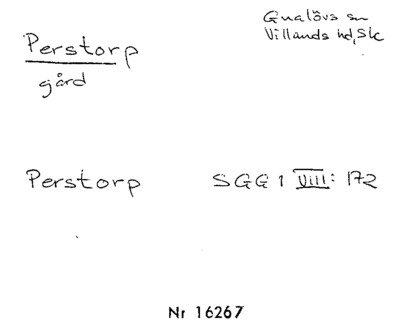 Perstorp
gård
Gualövs sn
Villands hd, Sk
Perstorp SGG 1 VIII: 172
Nr 16267